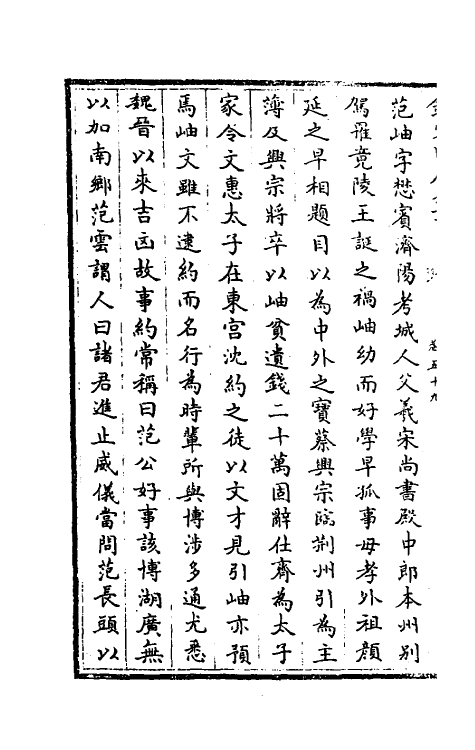 卷五十九
范岫字懋賓濟陽考城人父羲宋尚書殿中郎本州別
駕罹竟陵王誕之禍岫幼而好學早孤事母孝外祖顔
延之早相題目以為中外之寶蔡興宗臨荆州引為主
簿及興宗將卒以岫貧遺錢二十萬固辭仕齊為太子
家令文惠太子在東宫沈約之徒以文才見引岫亦預
焉岫文雖不逮約而名行為時輩所與博涉多通尤悉
魏晉以來吉凶故事約常稱曰范公好事該博胡廣無
以加南鄉范雲謂人曰諸君進止威儀當問范長頭以